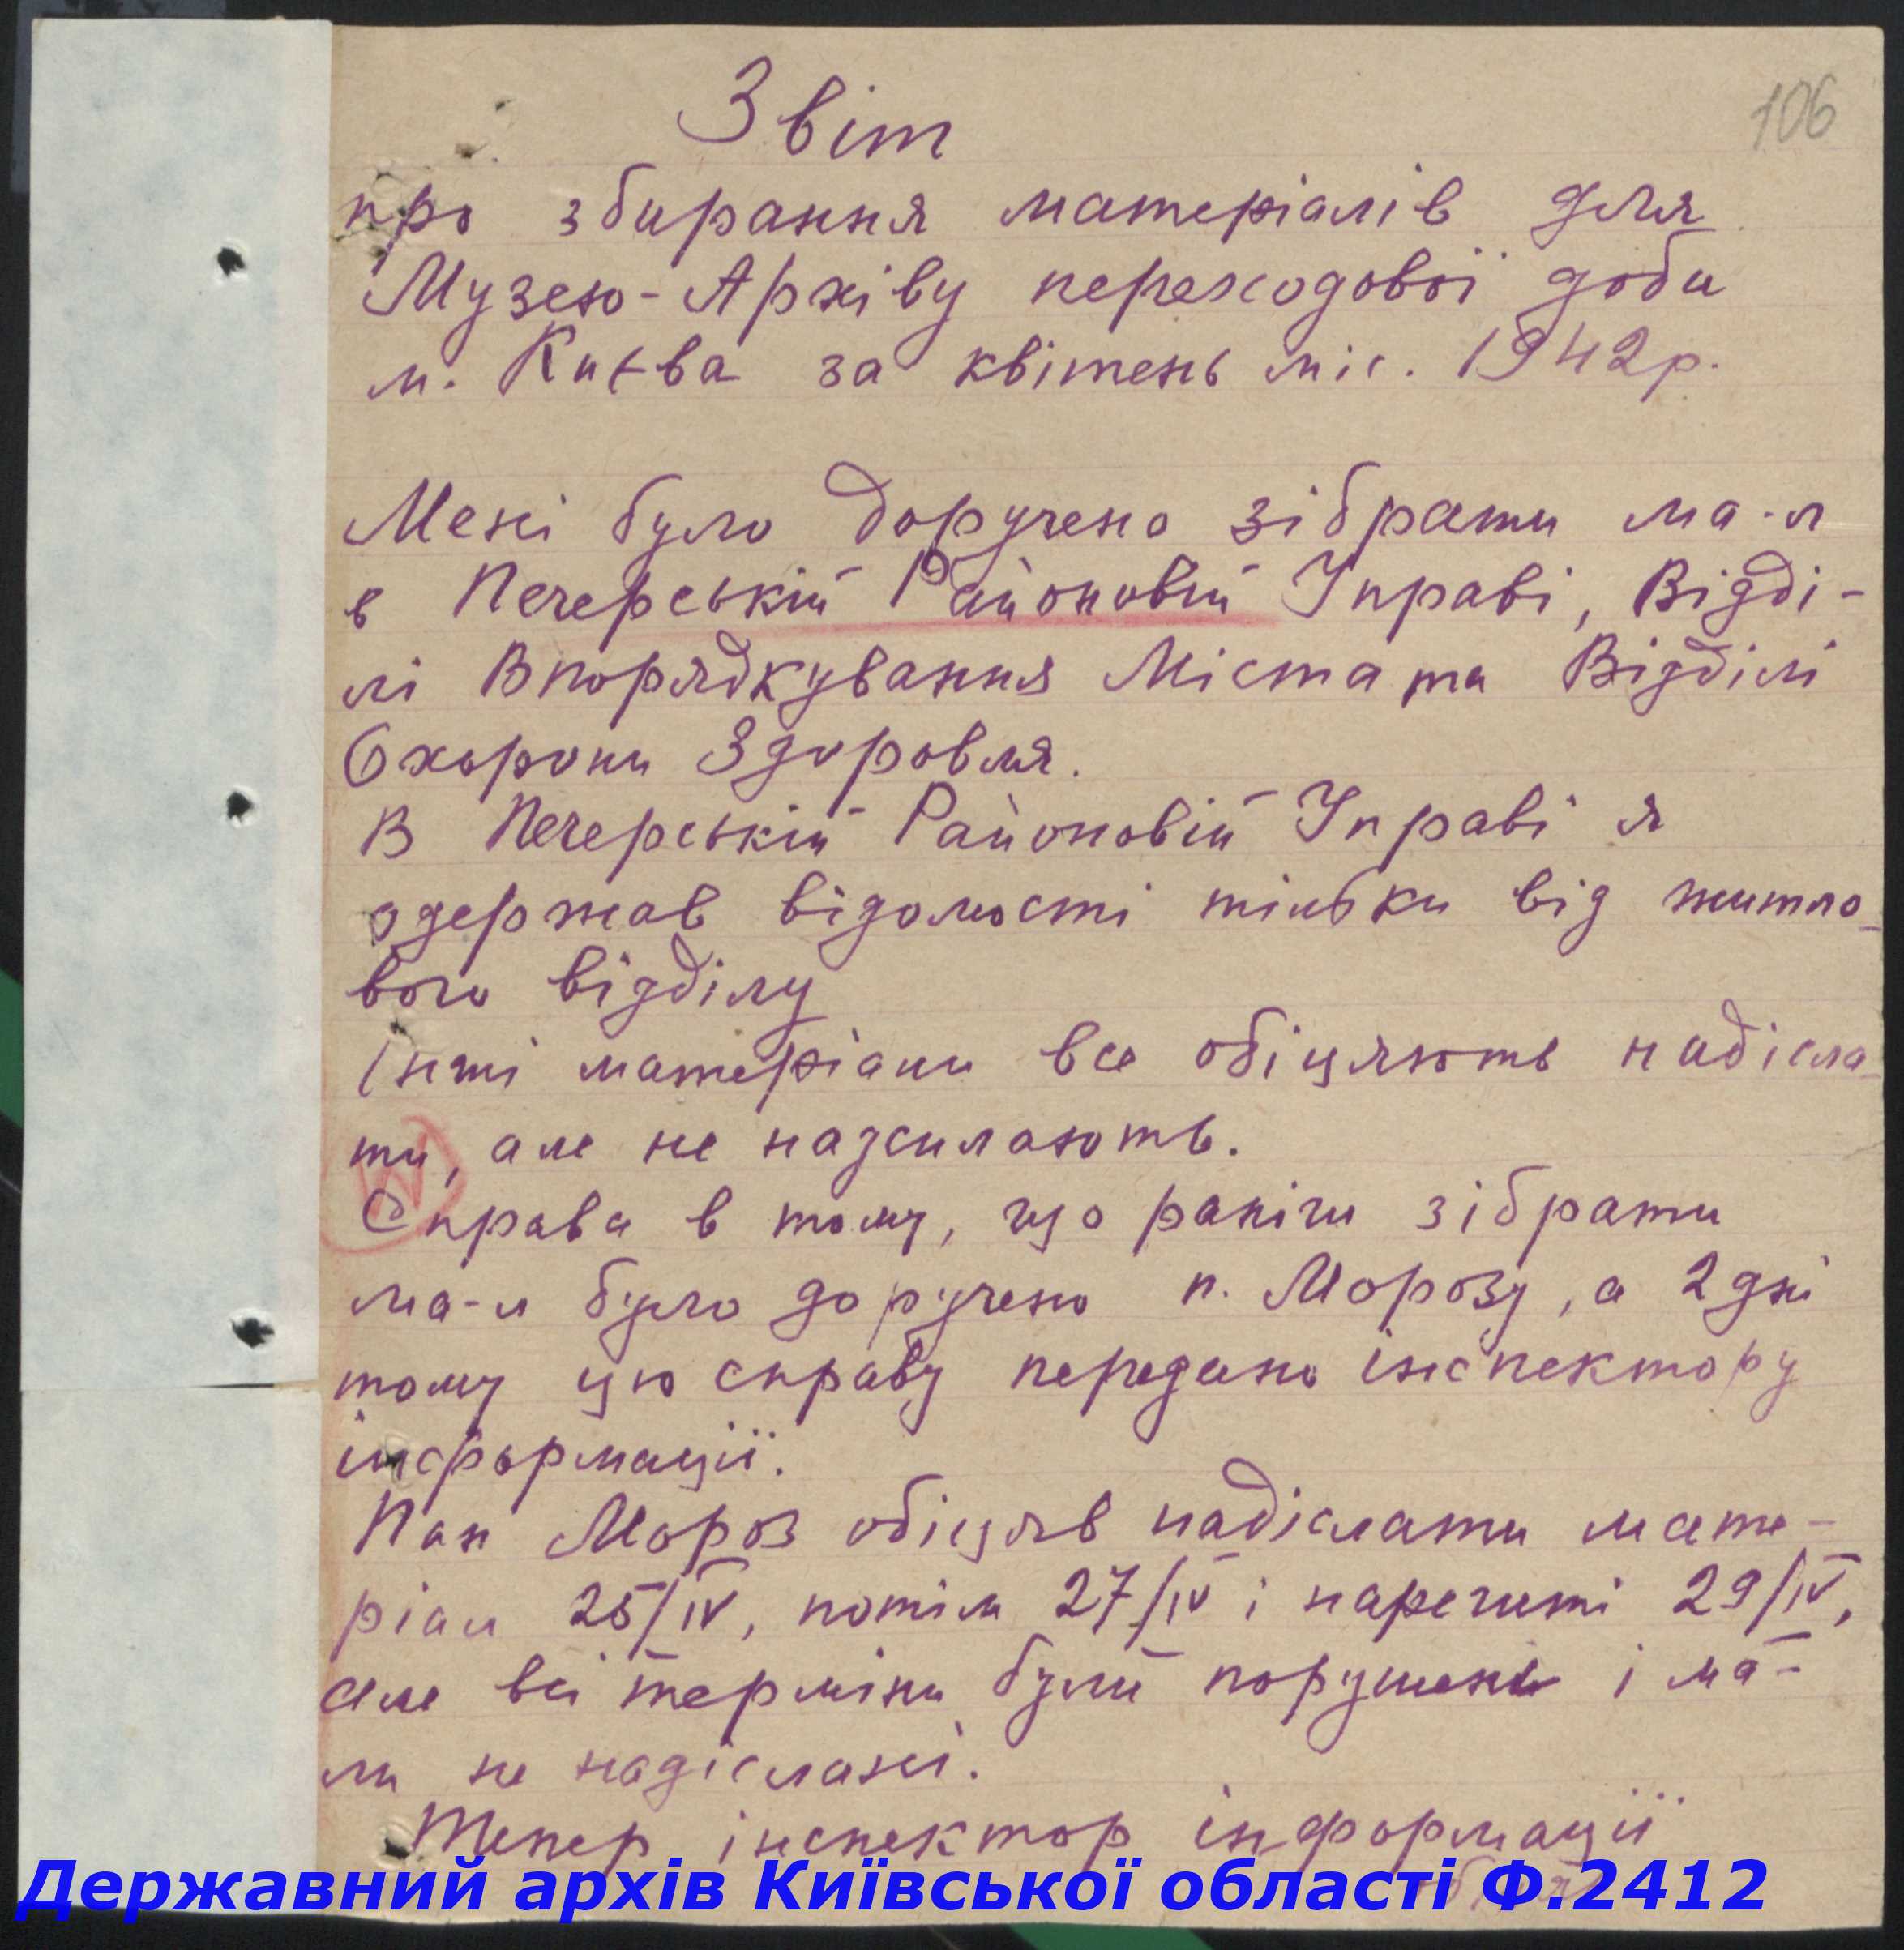 106
Звіт
про збирання матеріалів для
Музею-Архіву переходової доби
м. Києва за квітень міс. 1942р.
Мені було доручено зібрати ма-л
в Печерській Районовій Управі, Відді-
лі Впорядкування Міста та Відділі
Охорони Здоровля.
В Печерській Районовій Управі я
одержав відомості тільки від житло-
вого відділу
Інші матеріали все обіцяють надісла-
ти, але не надсилають.
Справа в тому, що раніш зібрати
ма-л було доручено п. Морозу, а 2 дні
тому цю справу передано інспектору
інформації.
Пан Мороз обіцяв надіслати мате-
ріал 25/IV, потім 27/IV і нарешті 29/IV,
але всі терміни були порушені і ма-
ли не надіслані.
Тепер інспектор інформації
Державний архів Київської області Ф.2412